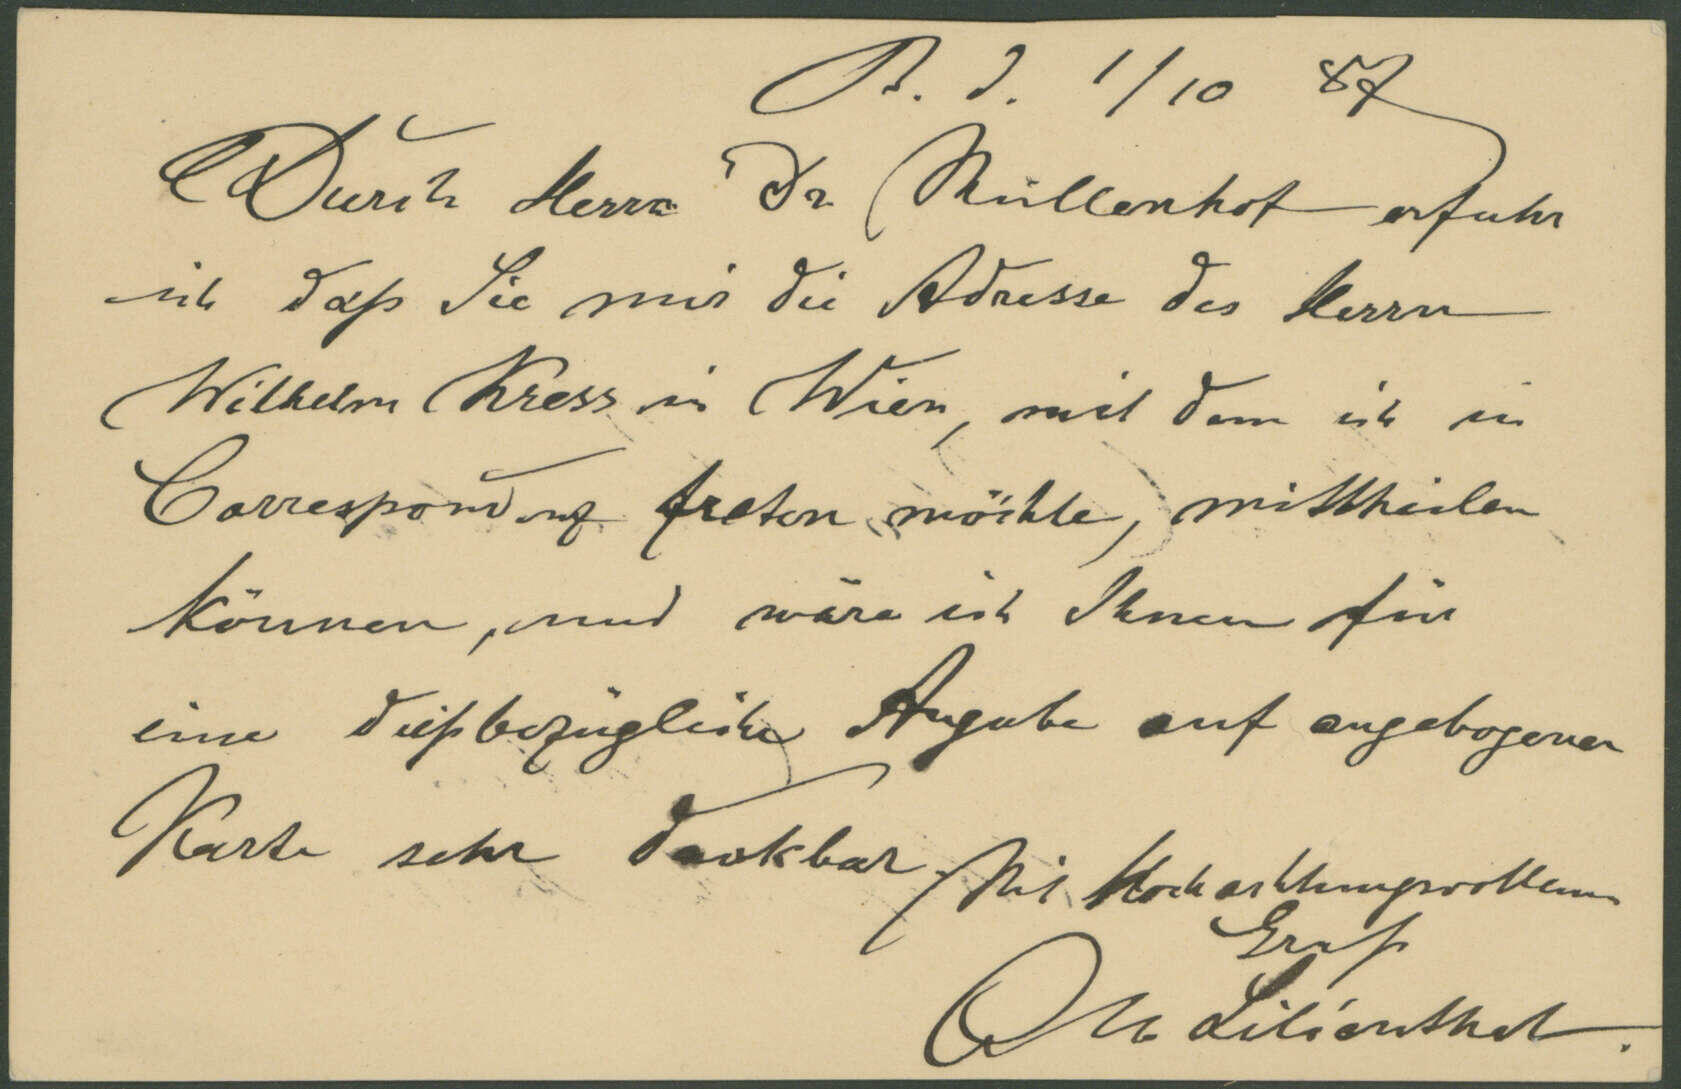 B. d. 1/10 87
Durch Herrn Dr Müllenhof erfuhr
ich daß Sie mir die Adresse des Herrn
Wilhelm Kress in Wien, mit dem ich in
Correspondenz treten möchte, mittheilen
können, und wäre ich Ihnen für
eine dießbezügliche Angabe auf angebogener
Karte sehr dankbar. Mit Hochachtungsvollem
Gruß
Otto Lilienthal.